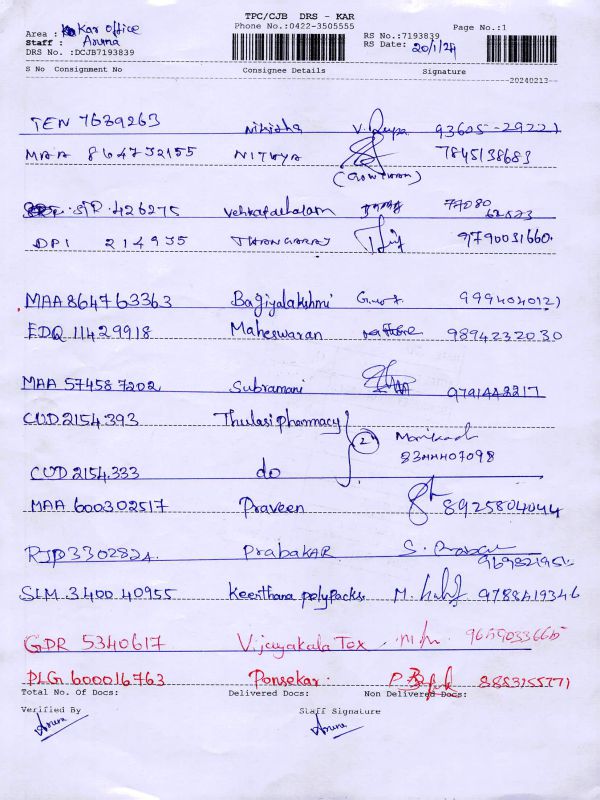 TPC/CJB DRS - KAR
Phone No.:0422-3505555
Page No.:1
Area : Kar office
Staff : Aruna
DRS No. :DCJB7193839
RS No.:7193839
RS Date: 20/1/24
S No Consignment No Consignee Details Signature
20240213
TEN 7639263 Nikisha V. Rupa 93605-29221
MAA 864732155 NITHYA 7845138683
(Gowtham)
STR 426275 Venkatachalam 77080
62823
DPI 214935 THANGARAJ 9790031660
MAA 864763363 Bagiyalakshmi 9994040121
EDQ 11429918 Maheswaran 9894232030
MAA 574587202 Subramani 9791448217
CUD 2154393 Thulasi pharmacy
2 Manikand
8344407098
CUD 2154333 do
MAA 600302517 Praveen 8925804044
RJP 3302824 Prabakar S. Prabakar
SLM 340040955 Keerthana polypacks 9788419346
GDR 5340617 Vijayakala Tex 9659033665
PLG 600016763 Ponsekar 8883155771
Total No. Of Docs: Delivered Docs: Non Delivered Docs:
Verified By Staff Signature
Aruna Aruna